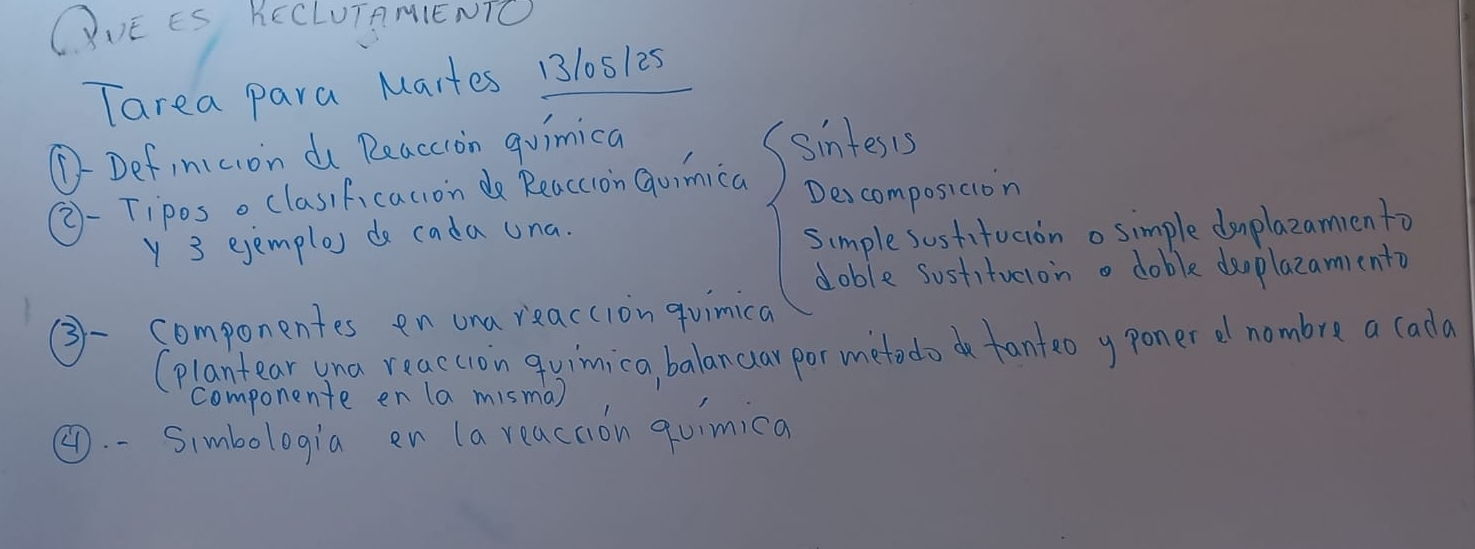 QUE ES RECLUTAMIENTO
Tarea para Martes 13/05/25
①- Definición de Reacción química
②- Tipos o clasificación de Reacción Química
y 3 ejemplos de cada una.
Síntesis
Descomposición
Simple sustitución o simple desplazamiento
doble sustitución o doble desplazamiento
③- Componentes en una reacción química
(plantear una reacción química, balancear por método de tanteo y poner el nombre a cada
componente en la misma)
④.- Simbología en la reacción química